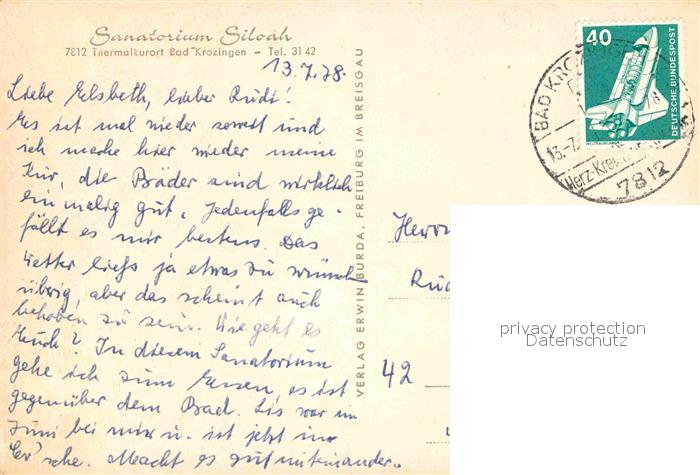 Sanatorium Siloah
7812 Thermalkurort Bad Krozingen - Tel. 31 42
13.7.78.
Liebe Elsbeth, lieber Rudi!
Es ist mal wieder soweit und
ich mache hier wieder meine
Kur, die Bäder sind wirklich
einmalig gut. Jedenfalls ge-
fällt es mir bestens. Das
Wetter ließ ja etwas zu wünsch
übrig, aber das scheint auch
behoben zu sein. Wie geht es
Euch? In diesem Sanatorium
gehe ich zum Essen, es ist
gegenüber dem Bad. Lis war im
Juni bei mir u. ist jetzt in
sche. Macht es gut miteinander.
VERLAG ERWIN BURDA, FREIBURG IM BREISGAU
40
DEUTSCHE BUNDESPOST
BAD KROZINGEN
13.-7.
Herz-Kre
7812
Herrn
Rud
42
privacy protection
Datenschutz